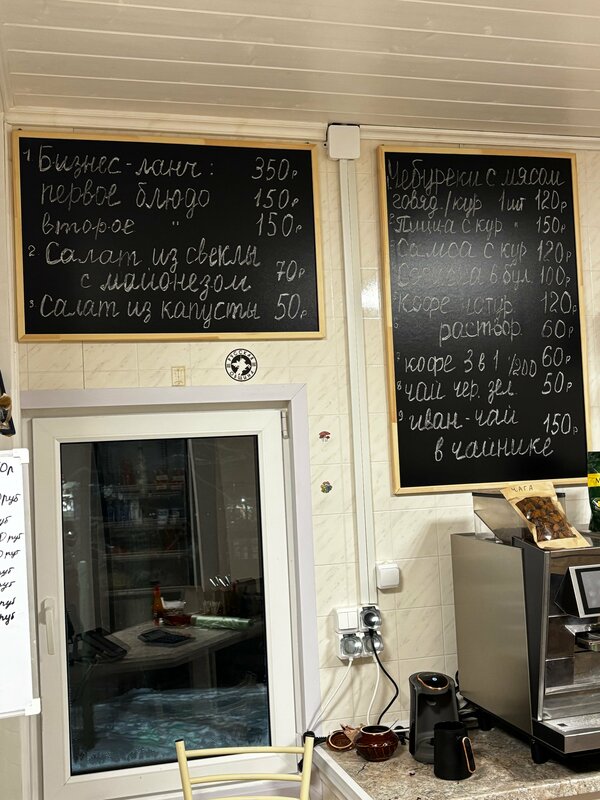 1 Бизнес-ланч: 350р
первое блюдо 150р
второе " 150р
2. Салат из свеклы
с майонезом 70р
3. Салат из капусты 50р
Чебуреки с мясом
говяд/кур 1 шт 120р
2 Пицца с кур " 150р
Самса с кур 120р
Сосиска в бул 100р
Кофе натур. 120р
раствор. 60р
7 кофе 3 в 1 1/200 60р
8 чай чер. зел. 50р
9 иван-чай 150р
в чайнике
ЧАГА
руб
руб
руб
руб
руб